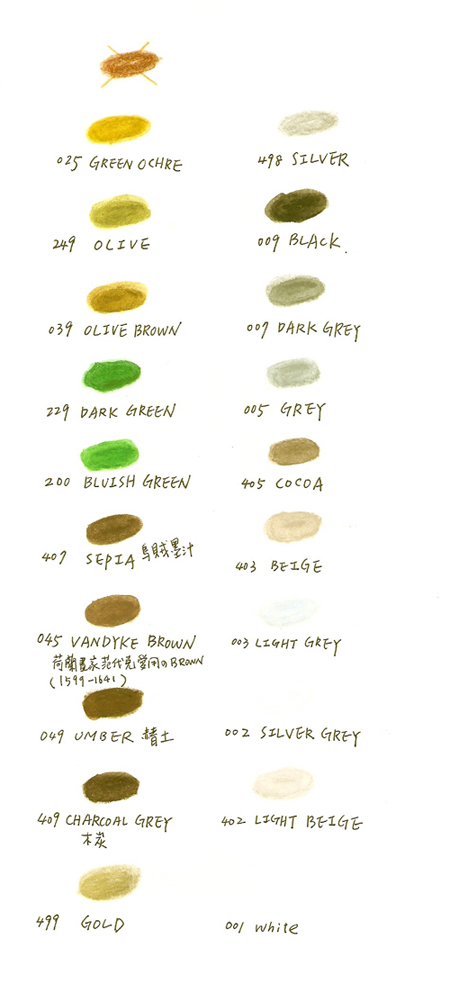 025 GREEN OCHRE
249 OLIVE
039 OLIVE BROWN
229 DARK GREEN
200 BLUISH GREEN
407 SEPIA 烏賊墨汁
045 VANDYKE BROWN
荷蘭畫家范代克愛用の BROWN
(1599-1641)
049 UMBER 赭土
409 CHARCOAL GREY
木炭
499 GOLD
498 SILVER
009 BLACK.
007 DARK GREY
005 GREY
405 COCOA
403 BEIGE
003 LIGHT GREY
002 SILVER GREY
402 LIGHT BEIGE
001 White